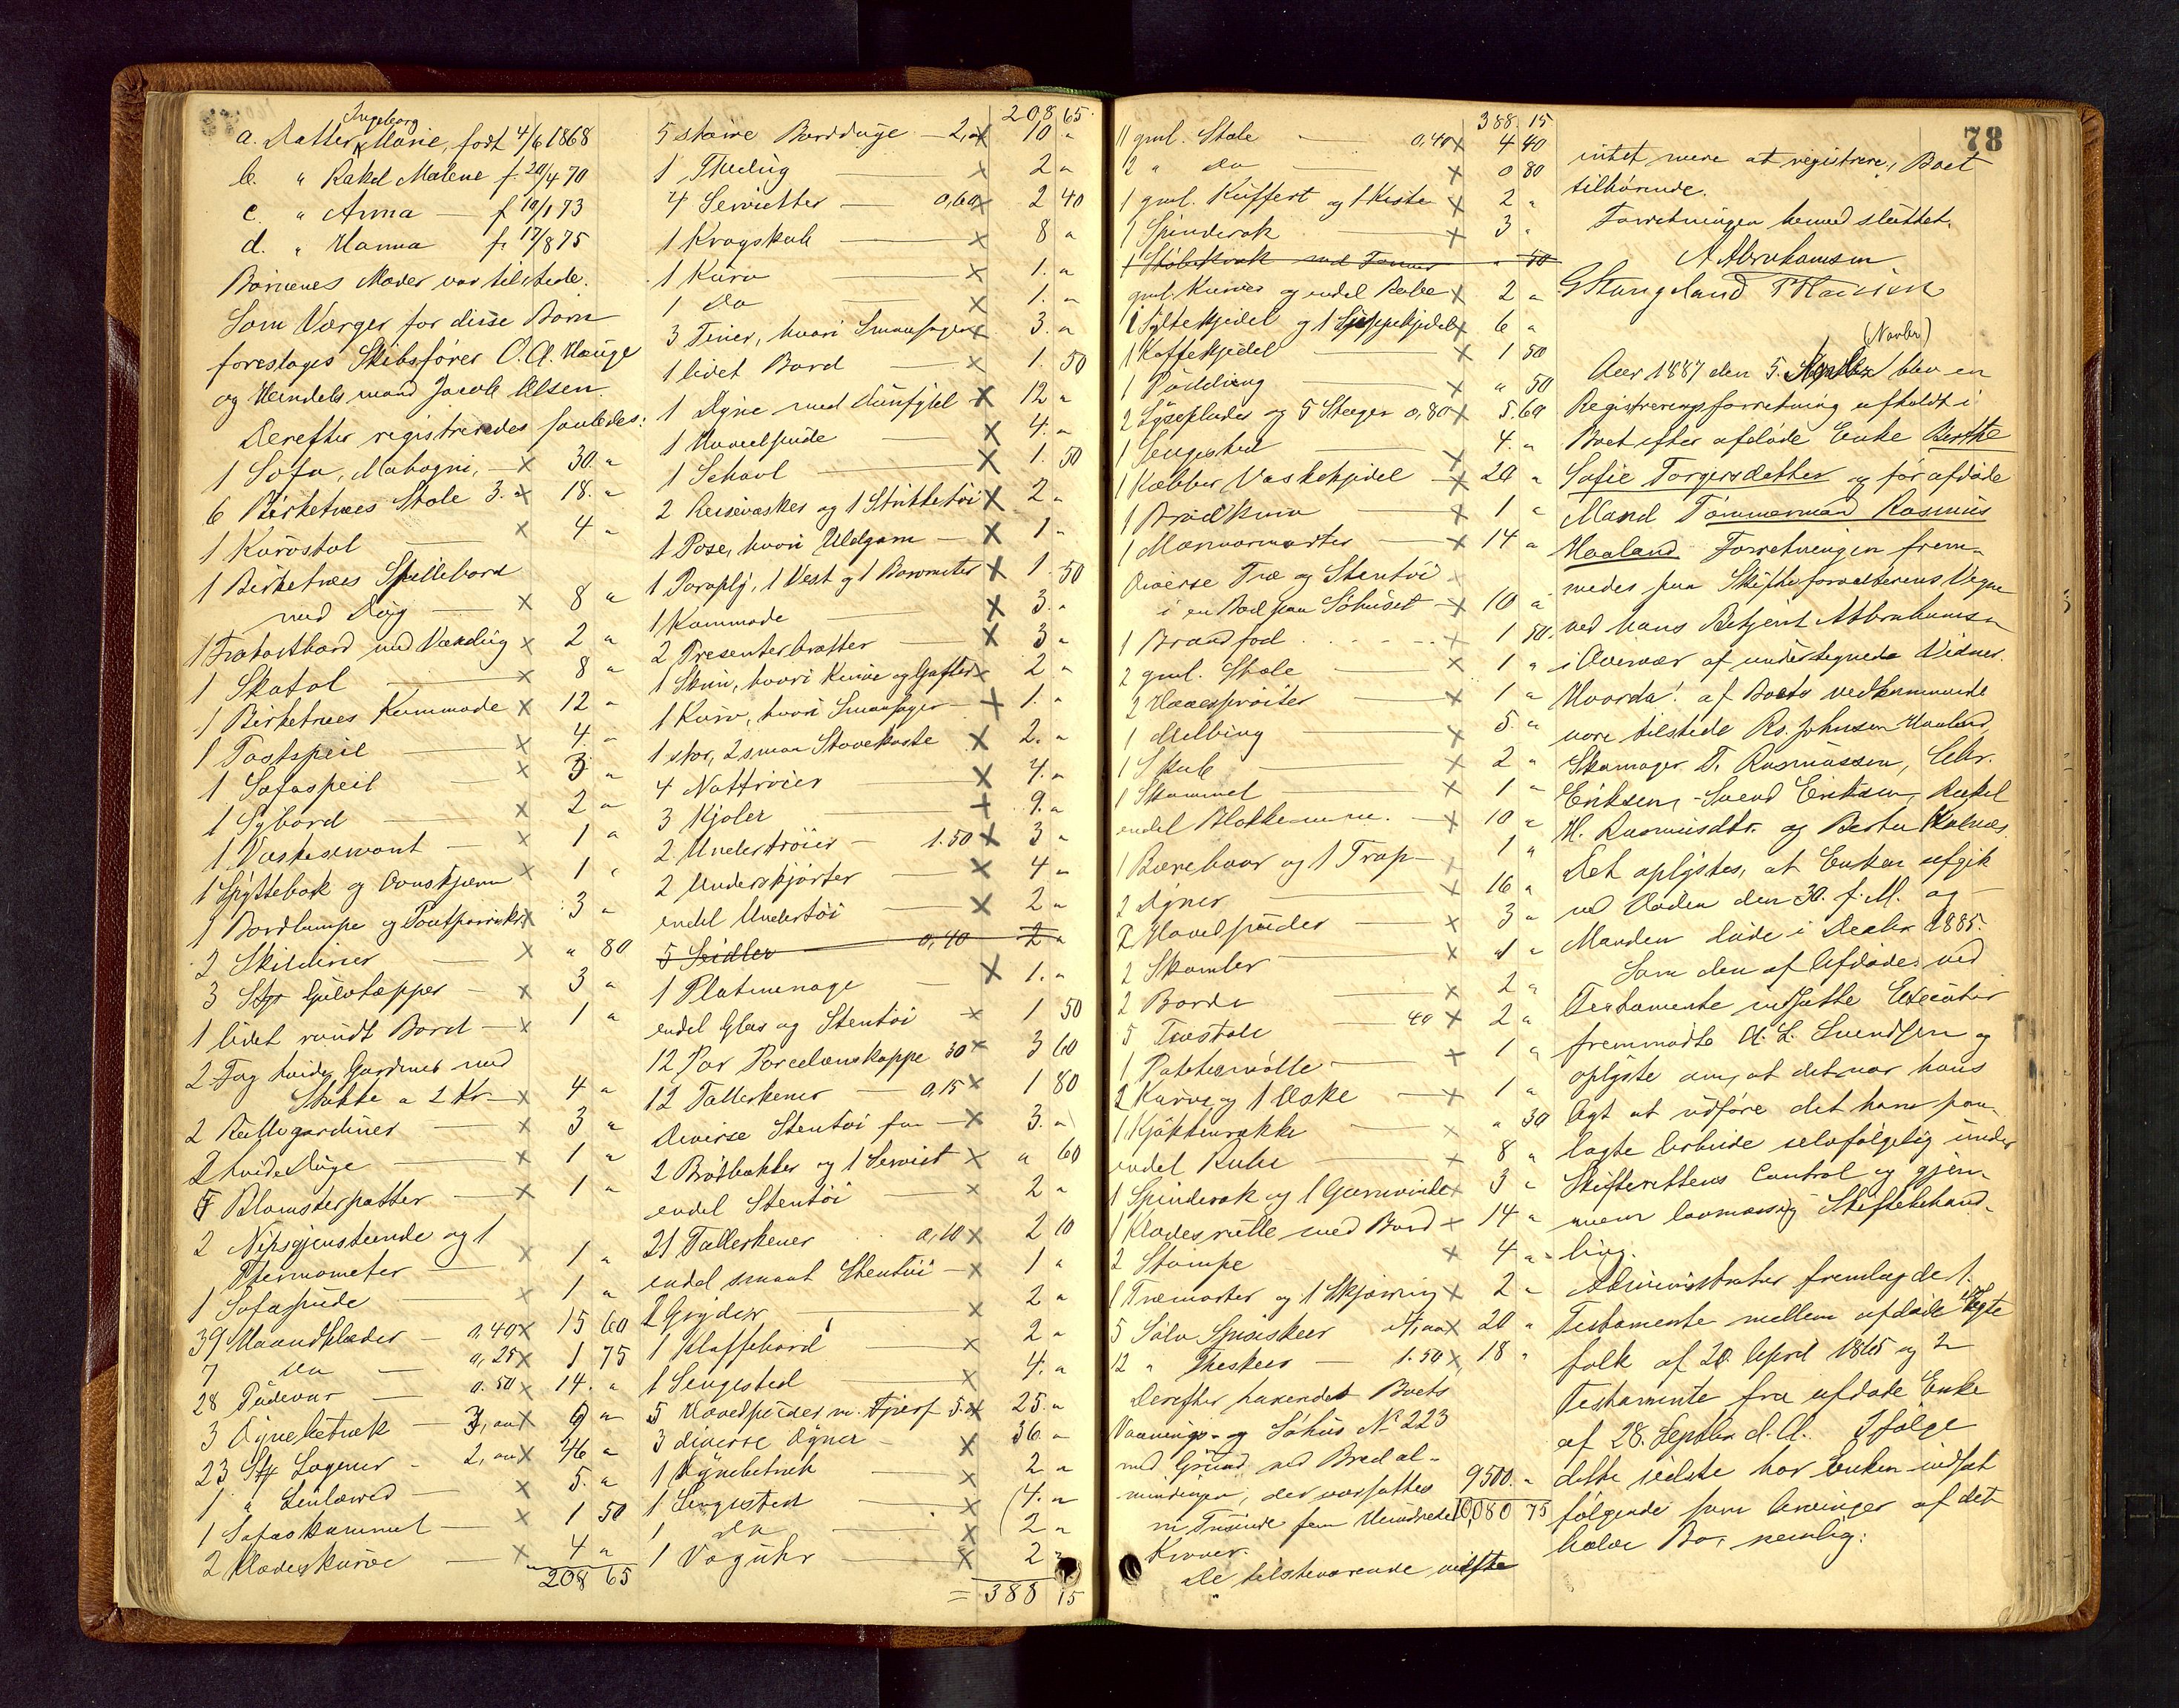 a. Datter Ingeborg Marie, født 4/6 1868
b. " Rakel Malene f. 20/4 70
c. " Anna — f 10/1 73
d. " Hanna f. 17/8 75
Børnenes Moder var tilstede.
Som Værger for disse Børn
foresloges Skibsfører O. A. Hauge
og Handelsmand Jacob Olsen.
Derefter registreredes saaledes:
1 Sofa, Mahogni, — x 30. "
6 Birketræes Stole 3. " x 18. "
1 Kurvstol — x 4 "
1 Birketræes Spillebord
med Dug — x 8 "
1 Frokostbord med Voxdug x 2 "
1 Skatol — x 8 "
1 Birketræes Kommode x 12 "
1 Toiletspeil — x 4. "
1 Sofaspeil — x 3 "
1 Sybord — x 2 "
1 Vaskeservant — x 1 "
1 Spyttebak og Ovnskjærm x 1 "
1 Bordlampe og x 3 "
2 Skilderier — x " 80
3 Stkr Gulvtæpper — x 3 "
1 lidet rundt Bord — x 1 "
2 Fag hvide Gardiner med
Stokke a 2 Kr — x 4 "
2 Rullegardiner — x 3 "
2 hvide Duge — x 1 "
5 Blomsterpotter — x 1 "
2 Nipsgjenstande og 1
Thermometer — x 1 "
1 Sofapude — x 1 "
39 Haandklæder — 0,40 x 15 60
7 do — 0,25 x 1 75
28 Pudevar — 0.50 x 14. "
3 Dynebetræk — x 6 "
23 Stk Lagener - 2, " x 46 "
1 " — x 5. "
1 Sofaskammel — x 1 50
2 Klædeskurve — x 4 "
208 65
208 65
5 større Bordduge — 2, " x 10 "
1 Thedug — x 2 "
4 Servietter — 0,60 x 2 40
1 Kragskab — x 8 "
1 Kurv — x 1. "
1 do — x 1. "
3 Tiner, hvori Smaasager x 3. "
1 lidet Bord — x 1. 50
1 Dyne med Dunfyld x 12 "
1 Hovedpude — x 4. "
1 Schavl — x 1. 50
2 Reisevasker og 1 Strikketøi x 2 "
1 Pose, hvori Uldgarn — x 1 "
1 Paraply, 1 Vest og 1 Barometer x 1. 50
1 Kommode — x 3. "
2 Presenterbratter — x 3 "
1 Skrin, hvori Knive og Gafler x 2 "
1 Kurv, hvori Smaasager — x 1. "
1 stor, 2 smaa Stovekoste x 2. "
4 Nattrøier — x 4. "
3 Kjoler — x 9. "
2 Undertrøier — 1.50 x 3 "
2 Underskjørter — x 4 "
endel Undertøi — x 2 "
5 Seidler 0,40 2 "
1 Platmenage — x 1. "
endel Glas og Stentøi — x 1 50
12 Par Porcelænskoppe 30 x 3 60
12 Tallerkener — 0,15 x 1 80
Diverse Stentøi for — x 3. "
2 Brødbakker og 1 Servist x " 60
endel Stentøi — x 2 "
21 Tallerkener 0,10 x 2 10
endel smaat Stentøi — x 1 "
2 Gryder — x 2 "
1 Klaffebord — x 2 "
1 Sengested — x 4. "
5 Hovedpuder m. Fjær 5. " x 25. "
3 diverse Dyner — x 36. "
1 Dynebetræk — x 2 "
1 Sengested — x 4. "
1 do — x 2 "
1 Vaguhr — x 2 "
= 388 15
388. 15
11 gml. Stole — 0,40 x 4 40
2 " do — x 0 80
1 gml. Kuffert og 1 Kiste x 2 "
1 Spinderok — x 3 "
1 " 50
gml. Kurve og endel x 2 "
1 Syltekjedel og 1 Suppekjedel x 6 "
1 Kaffekjedel — x 1 50
1 Pudding — x " 50
2 Lyseplader og 5 Stager 0,80 x 5. 60
1 Sengested — x 4. "
1 Kobber Vaskekjedel — x 20 "
1 Brødkurv — x 1 "
1 — x 14 "
Diverse Træ og Stentøi
i en Bod paa Søhuset — x 10 "
1 Brandfad — x 1 50.
2 gml. Stole — x 1 "
2 Havesprøiter — x 1 "
1 Melbing — x 5. "
1 Skab — x 2 "
1 Skammel — x 1 "
endel — x 10 "
1 Bærebaar og 1 Trap — x 1 "
2 Dyner — x 16 "
2 Hovedpuder — x 3 "
2 Skamler — x 1 "
2 Borde — x 2 "
5 Træstole — 40 x 2 "
1 Potetesmølle — x 1 "
2 Kurve og 1 Æske — x 1 "
1 Kjøkkenrække — x " 30
endel — x 8 "
1 Spinderok og 1 Garnvinde x 3 "
1 Klædesrulle med Bord — x 14 "
2 Stampe x 4 "
1 Træmorter og 1 x 2 "
5 Sølv Spiseskeer 4, " x 20 "
12 " Theskeer — 1.50 x 18 "
Derefter Boets
Vaanings- og Søhus No 223
med Grund ved Bredal-
mindingen, der ansattes 9500. "
ni Tusinde fem Hundrede 10,080 75
Kroner.
De tilstedeværende vidste
78
intet mere at registrere, Boet
tilhørende.
Forretningen hermed sluttet.
A Abrahamsen
G Stangeland T Hansen
(Novbr)
Aar 1887 den 5. Septbr blev en
Registreringsforretning afholdt i
Boet efter afdøde Enke Berthe
Sofie Torgersdatter og før afdøde
Mand Tømmermand Rasmus
Haaland. Forretningen frem-
medes paa Skifteforvalterens Vegne
ved hans Betjent A Abrahamsen
i Overvær af undertegnede Vidner.
Hvorda: af Boets vedkommende
vare tilstede Rs. Johnsen Haaland,
Skomager T. Rasmussen, Chr.
Eriksen, Svend Eriksen, Rakel
H. Rasmusdtr. og Berta
Det oplystes, at Enken afgik
ved Døden den 30. f. M. og
Manden døde i Decbr 1885.
Som den af Afdøde ved
Testamente indsatte Executor
fremmødte A. L. Svendsen og
oplyste om, at det var hans
Agt at udføre det ham paa-
lagte Arbeide selvfølgelig under
Skifterettens Control og gjen-
nem lovmæssig Skiftebehand-
ling.
Administrator fremlagde 1.
Testamente mellem afdøde Ægte
folk af 20. April 1865 og 2
Testamente fra afdøde Enke
af 28. Septbr d. A. Ifølge
dette sidste har Enken indsat
følgende som Arvinger af det
halve Bo, nemlig: